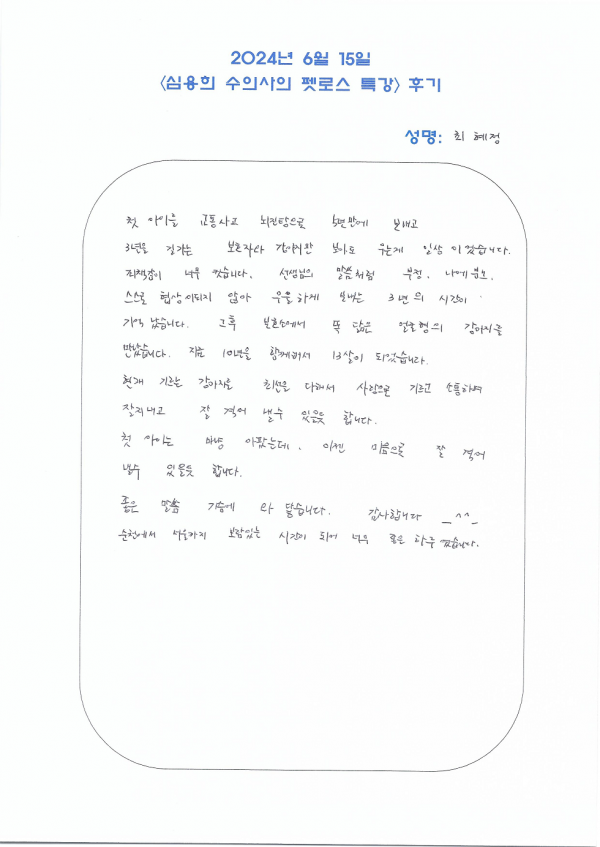 2024년 6월 15일
<심용희 수의사의 펫로스 특강> 후기
성명: 최 혜정
첫 아이를 교통사고 뇌진탕으로 5년만에 보내고
3년을 길가는 보호자와 강아지만 보아도 우는게 일상이었습니다.
죄책감이 너무 컸습니다. 선생님의 말씀처럼 부정, 나에
스스로 협상이되지 않아 우울하게 보내는 3년의 시간이
기억났습니다. 그후 보호소에서 똑 닮은 얼굴형의 강아지를
만났습니다. 지금 10년을 함께해서 13살이 되었습니다.
현재 기르는 강아지를 최선을 다해서 사랑으로 기르고 소통하며
잘지내고 잘 겪어 낼수 있을듯 합니다.
첫 아이는 마냥 아팠는데, 이젠 믿음으로 잘 겪어
낼수 있을듯 합니다.
좋은 말씀 가슴에 와 닿습니다. 감사합니다 _^^_
순천에서 서울까지 보람있는 시간이 되어 너무 좋은 하루 였습니다.